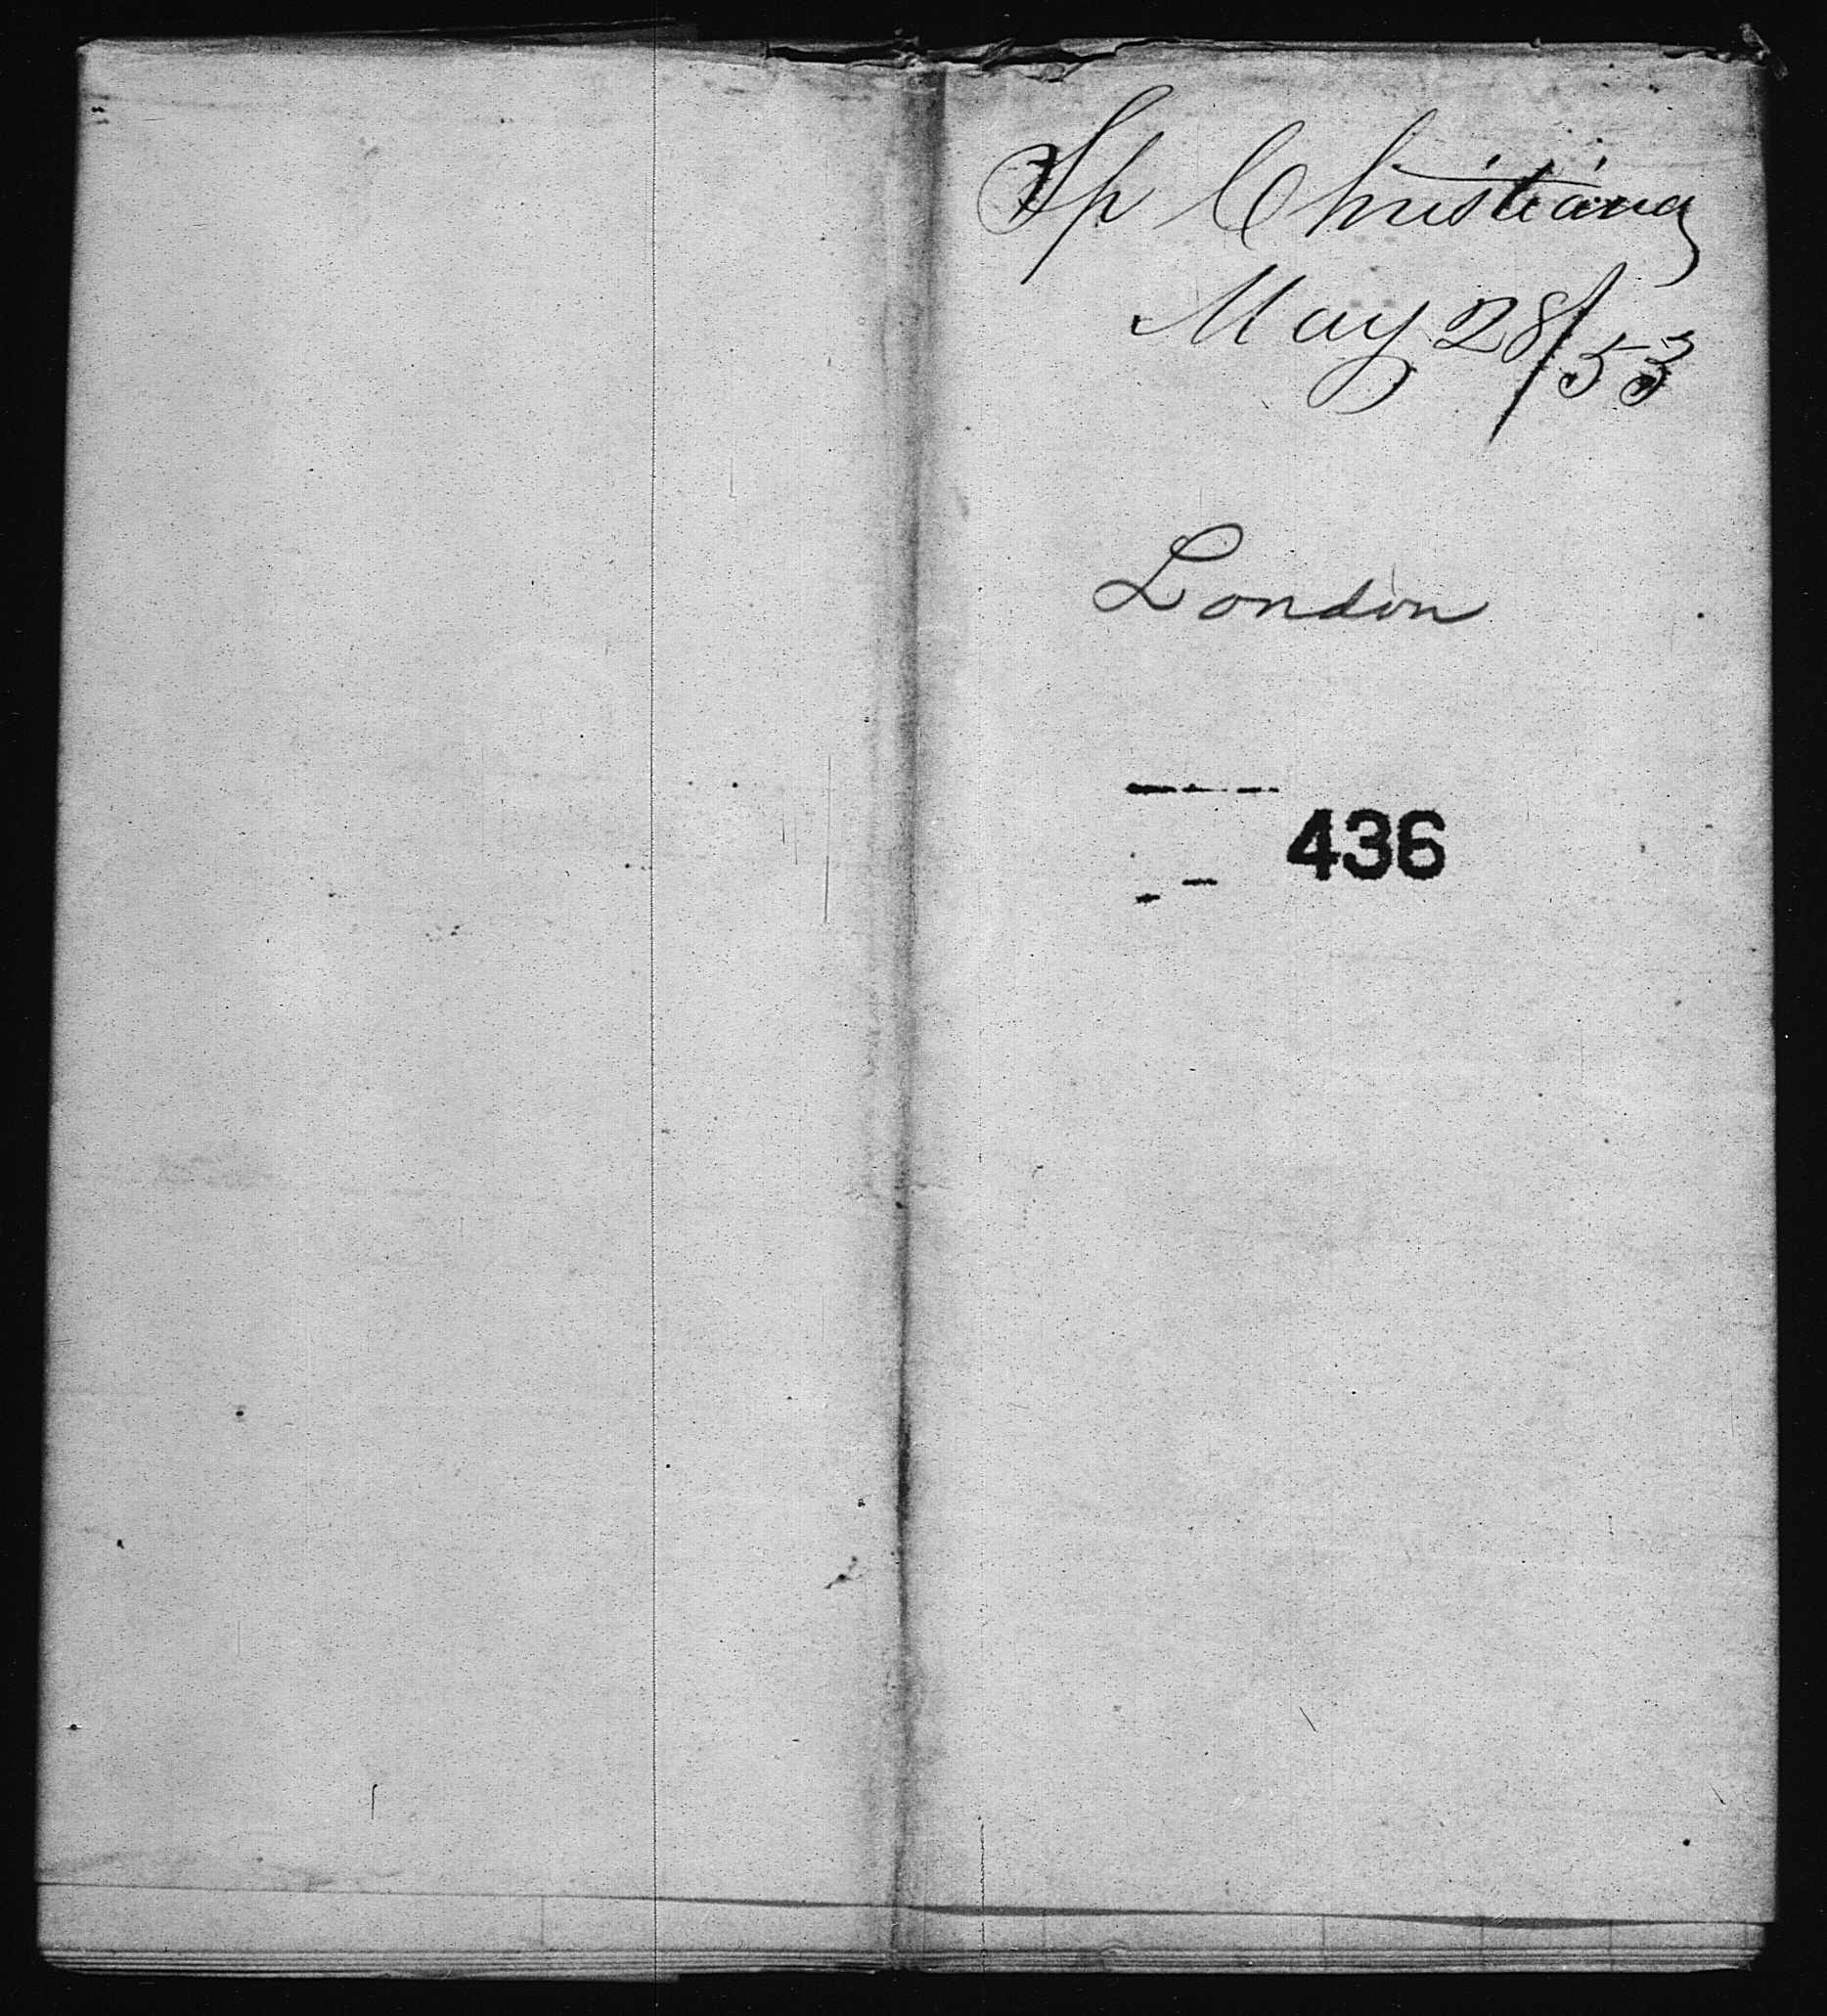 Sh Christiana
May 28/53
London
436